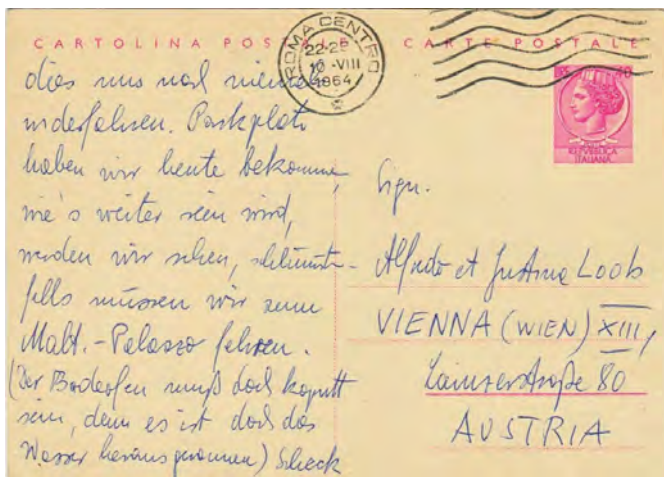 CARTOLINA POSTALE CARTE POSTALE
ROMA CENTRO
22-2
10 -VIII
1964
40
REPUBBLICA
ITALIANA
dies uns noch niemals
widerfahren. Parkplatz
haben wir heute bekommen,
wie's weiter sein wird,
werden wir sehen, schlimmsten-
falls müssen wir zum
Malt.-Palazzo fahren.
(Der Badeofen muß doch kaputt
sein, denn es ist doch das
Wasser herausgeronnen) Scheck
Sign.
Alfredo et Justine Loob
VIENNA (WIEN) XIII,
Lainzerstraße 80
AUSTRIA